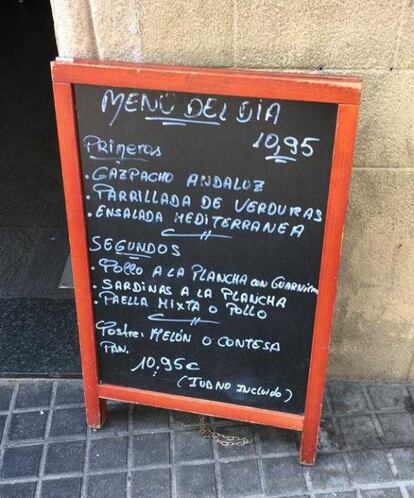 MENÚ DEL DIA
10,95
Primeros
. GAZPACHO ANDALUZ
. PARRILLADA DE VERDURAS
. ENSALADA MEDITERRANEA
SEGUNDOS
. Pollo A LA PLANCHA con Guarnición
. SARDINAS A LA PLANCHA
. PAELLA MIXTA O POLLO
Postre: MELÓN O CONTESA
PAN.
10,95€
(IVA NO INCLUIDO)